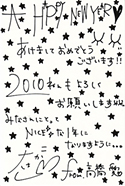 A HAPPY NEW YEAR
あけましておめでとう
ございます!!
2010年もよろしく
お願いします
みなさんにとって
Niceな1年に
なりますように…
from 高橋